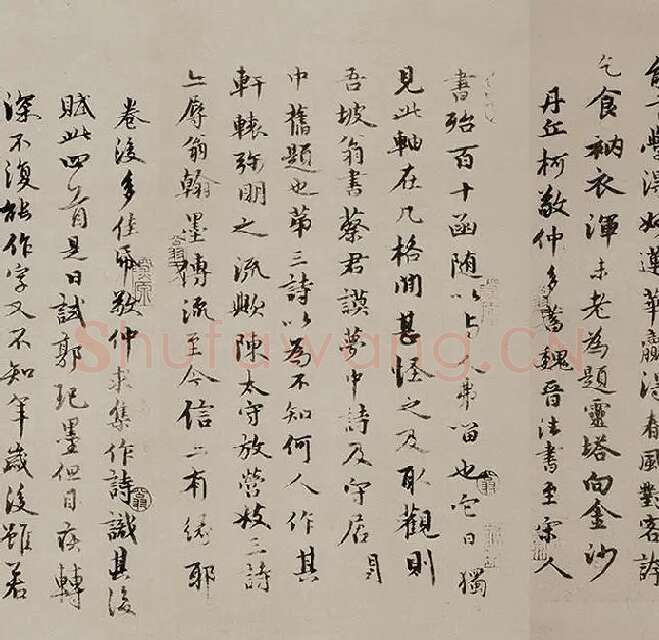 學得妙蓮華贏得春風對客誇
乞食衲衣渾未老為題靈塔向金沙
丹丘柯敬仲多蓄魏晉法書至宋人
書殆百十函随以與人弗留也它日獨
見此軸在几格間甚怪之及取觀則
吾坡翁書蔡君謨夢中詩及守居閣
中舊題也第三詩以為不知何人作其
軒轅彌明之流歟陳太守放營妓三詩
亦辱翁翰墨傳流至今信亦有緣耶
卷後多佳帋敬仲求集作詩識其後
賦此四首是日試郭玘墨但目疾轉
深不復能作字又不知年歲後雖若
Shufawang.CN